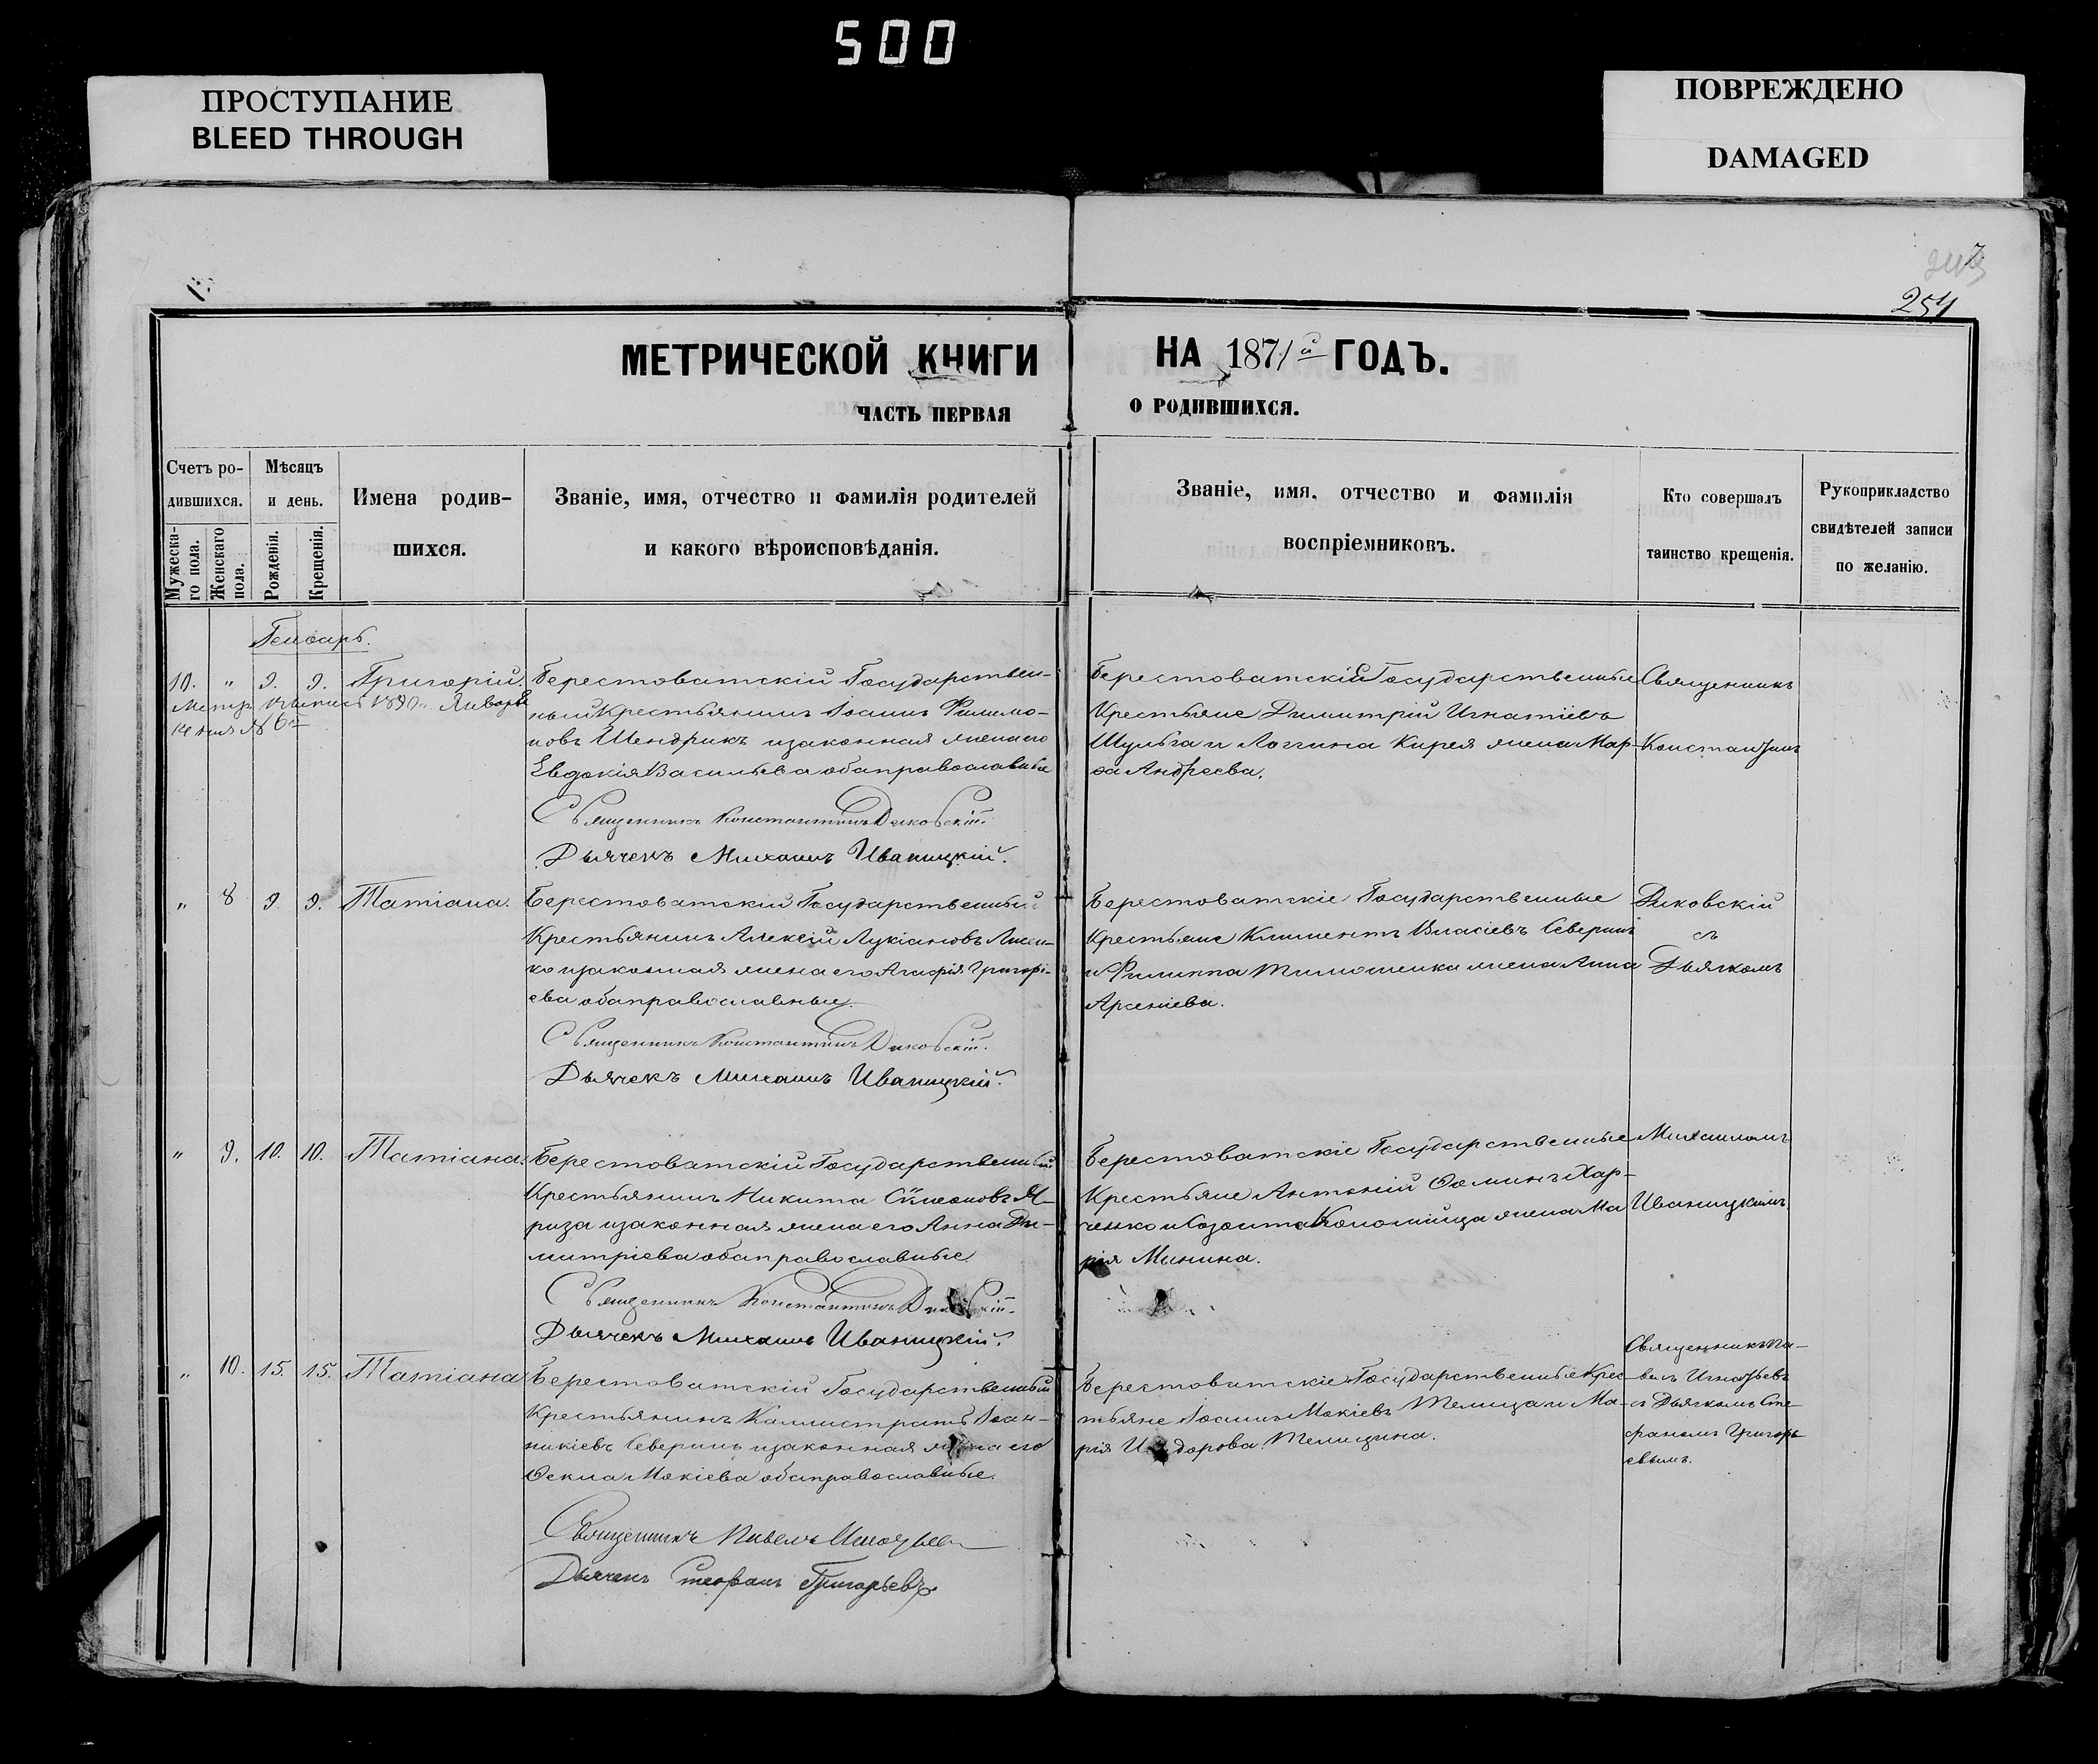 500
ПРОСТУПАНИЕ
BLEED THROUGH
ПОВРЕЖДЕНО
DAMAGED
7
254
МЕТРИЧЕСКОЙ КНИГИ НА 1871й ГОДЪ.
ЧАСТЬ ПЕРВАЯ О РОДИВШИХСЯ.
Счетъ ро-
дившихся.
Мужеска-
го пола.
Женскаго
пола.
Мѣсяцъ
и день.
Рожденія.
Крещенія.
Имена родив-
шихся.
Званіе, имя, отчество и фамилія родителей
и какого вѣроисповѣданія.
Званіе, имя, отчество и фамилія
воспріемниковъ.
Кто совершалъ
таинство крещенія.
Рукоприкладство
свидѣтелей записи
по желанію.
Генварь.
10. " 9. 9. Григорій.
Метр. 1890 Января
№ 6
Берестоватскій Государствен-
ный Крестьянинъ Іоаннъ Филимо-
новъ Шендрикъ и законная жена его
Евдокія Васильева оба православные
Священникъ Константинъ Диковскій.
Дьячекъ Михаилъ Иваницкій.
Берестоватскіе Государственные
Крестьяне Димитрій Игнатіевъ
Шульга и Логгина Кирея жена Мар-
ѳа Андреева.
Священникъ
Константинъ
" 8 9. 9. Татіана.
Берестоватскій Государственный
Крестьянинъ Алексій Лукіановъ Лисен-
ко и законная жена его Агафія Григорі-
ева оба православные.
Священникъ Константинъ Диковскій.
Дьячекъ Михаилъ Иваницкій.
Берестоватскіе Государственные
Крестьяне Климентъ Власіевъ Северинъ
и Филиппа Тимошенка жена Анна
Арсеніева.
Диковскій
съ
Дьячкомъ
" 9. 10. 10. Татіана.
Берестоватскій Государственный
Крестьянинъ Никита Симеоновъ Я-
риза и законная жена его Анна Ди-
митріева оба православные.
Священникъ Константинъ Диковскій.
Дьячекъ Михаилъ Иваницкій.
Берестоватскіе Государственные
Крестьяне Антоній Ѳоминъ Хар-
ченко и Созонта Коломійца жена Ма
рія Минина.
Михаиломъ
Иваницкимъ
" 10. 15. 15. Татіана
Берестоватскій Государственный
Крестьянинъ Каллистратъ Іоан-
никіевъ Северинъ и законная жена его
Ѳекла Мокіева оба православные.
Священникъ Павелъ Игнатьевъ
Дьячекъ Стефанъ Григорьевъ
Берестоватскіе Государственные Крес-
тьяне Іоаннъ Мокіевъ Телица и Ма-
рія Исидорова Телицина.
Священникъ Па-
велъ Игнатьевъ
съ Дьячкомъ Сте-
фаномъ Григорь-
евымъ.